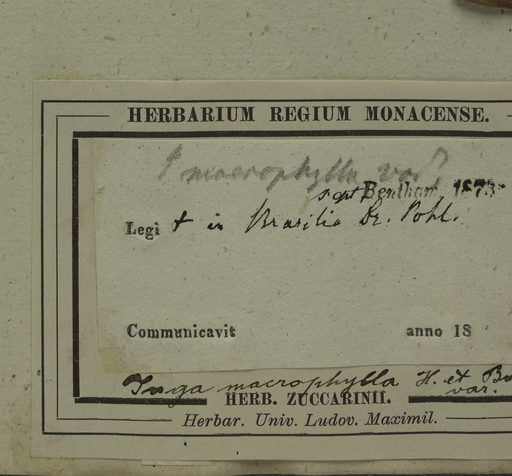 HERBARIUM REGIUM MONACENSE.
I macrophylla var?
sept Bentham 1873
Legi t in Brasilia Dr. Pohl.
Communicavit anno 18
Inga macrophylla H. et
var.
HERB. ZUCCARINII.
Herbar. Univ. Ludov. Maximil.